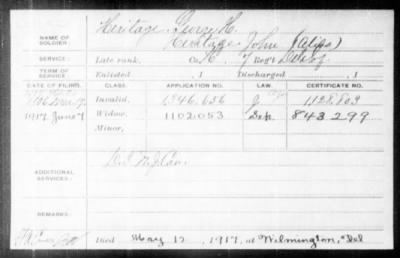 NAME OF SOLDIER:
Heritage, George H.
Heritage, John (Alias)
SERVICE: Late rank, Co. K, 7 Reg't Del Inf
TERM OF SERVICE: Enlisted , 1 Discharged , 1
DATE OF FILING. CLASS. APPLICATION NO. LAW. CERTIFICATE NO.
Invalid, 1,346,656 1128,803
1917 June 7 Widow, 1102,053 843,299
Minor,
ADDITIONAL SERVICES:
REMARKS:
Died May 12, 1917, at Wilmington, Del